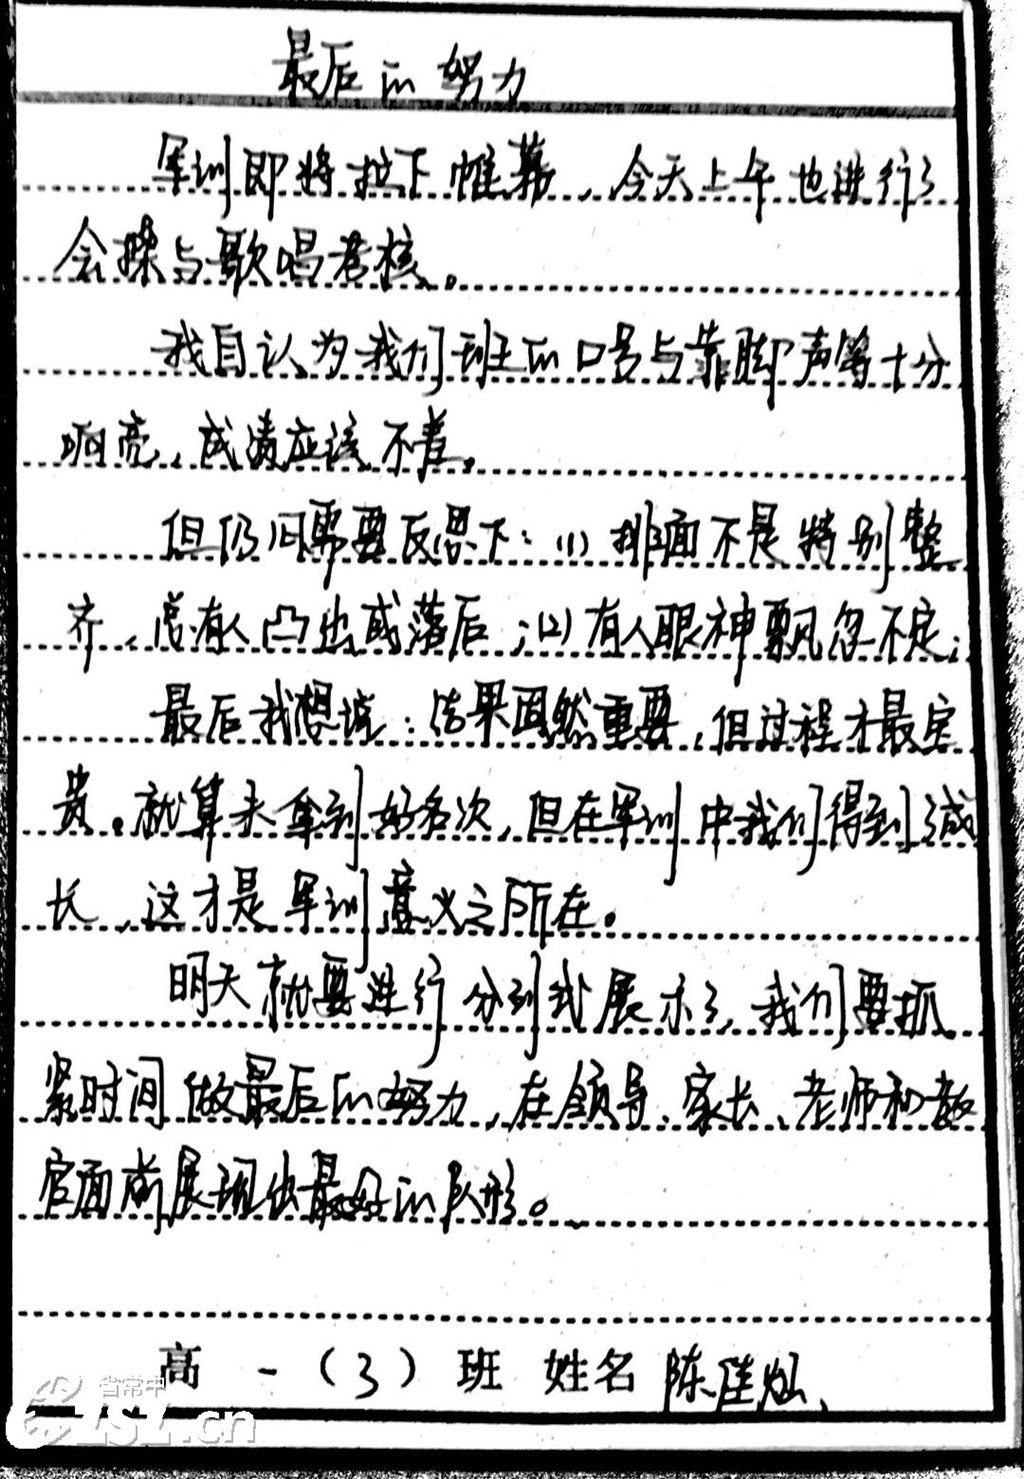 最后的努力
军训即将拉下帷幕，今天上午也进行了
会操与歌唱考核。
我自认为我们班的口号与靠脚声等十分
响亮，成绩应该不差。
但仍旧需要反思下：(1)排面不是特别整
齐，总有人凸出或落后；(2)有人眼神飘忽不定；
最后我想说：结果固然重要，但过程才最宝
贵。就算未拿到好名次，但在军训中我们得到了成
长，这才是军训意义之所在。
明天就要进行分列式展示了，我们要抓
紧时间做最后的努力，在领导、家长、老师和教
官面前展现出最好的队形。
高一（3）班 姓名 陈佳灿
省常中
CZSZ.cn